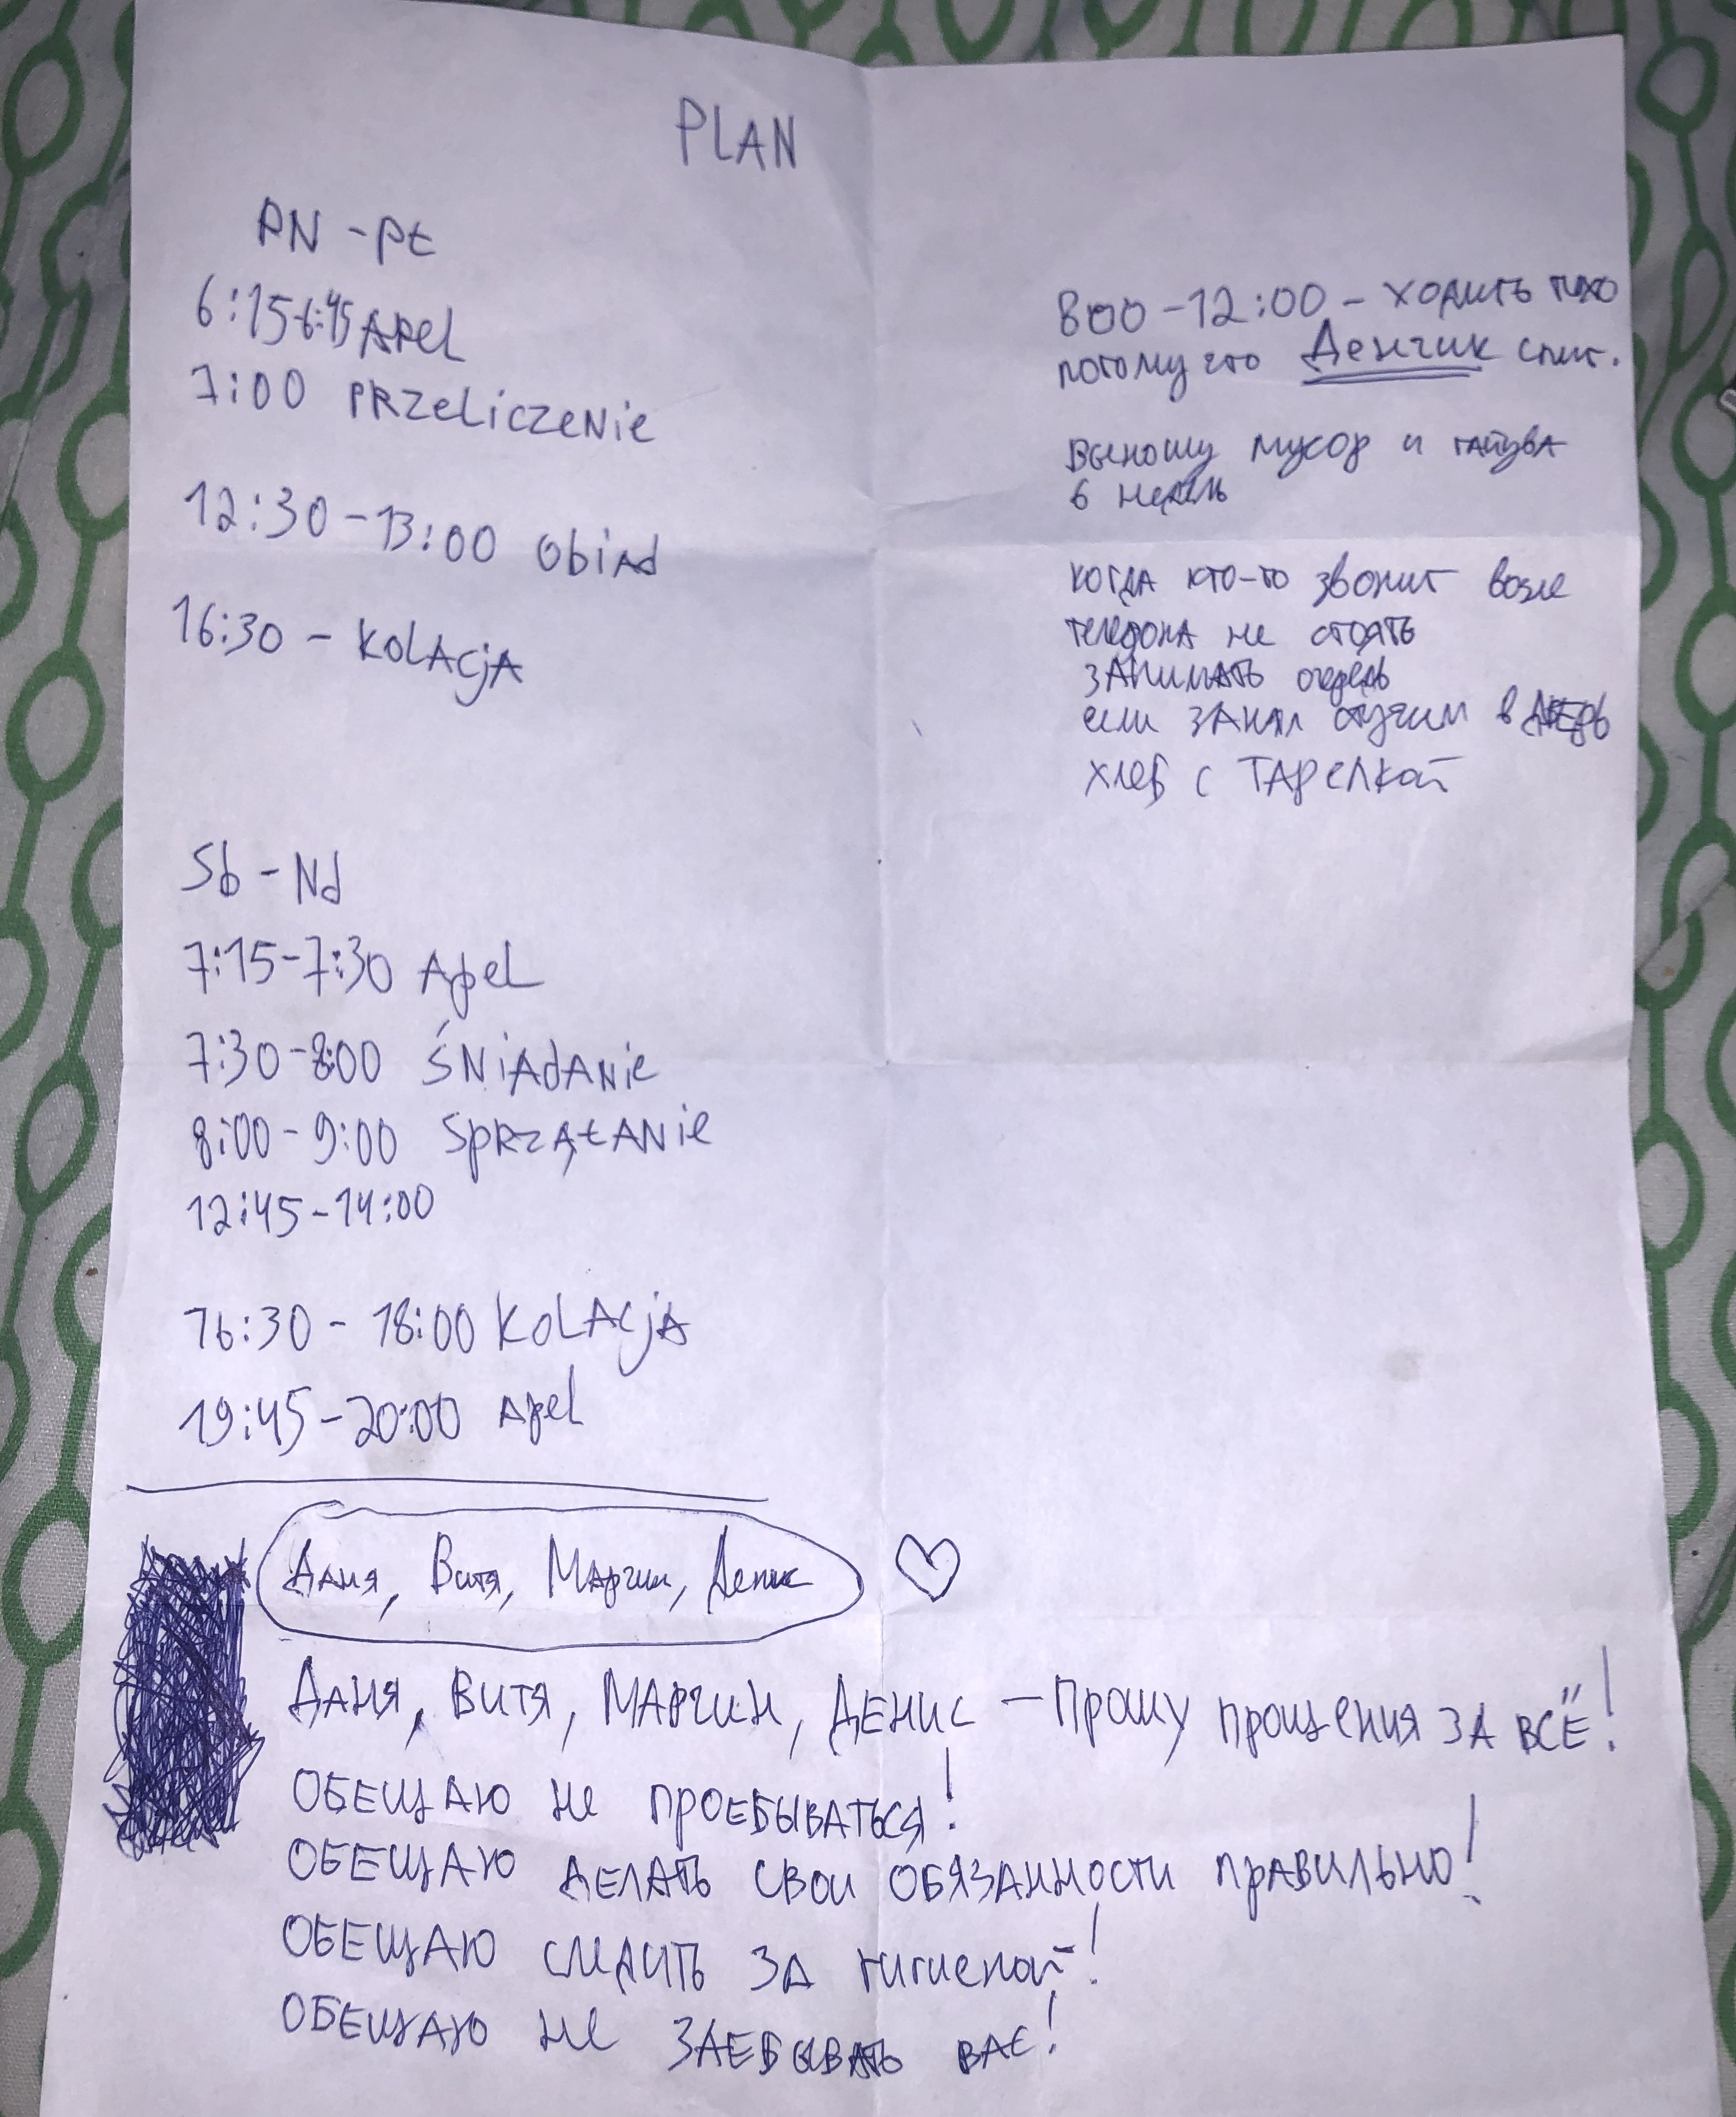 PLAN
PN - Pt
6:15-6:45 Apel
7:00 PRZELiCZENiE
12:30-13:00 Obiad
16:30 - KOLAcjA
8:00-12:00 - ходить тихо
потому что Денчик спит.
Выношу мусор и
6 недель
когда кто-то звонит возле
телефона не стоять
занимать очередь
если занял стучим в дверь
хлеб с тарелкой
Sb - Nd
7:15-7:30 Apel
7:30-8:00 ŚNiAdANiE
8:00-9:00 SpRZĄtANiE
12:45-14:00
16:30 - 18:00 KOLAcjA
19:45-20:00 Apel
Даня, Витя, Марчин, Денис
Даня, Витя, Марчин, Денис — Прошу прощения за всё!
ОБЕЩАЮ не проебываться!
ОБЕЩАЮ делать свои обязанности правильно!
ОБЕЩАЮ следить за гигиеной!
ОБЕЩАЮ не заебывать вас!